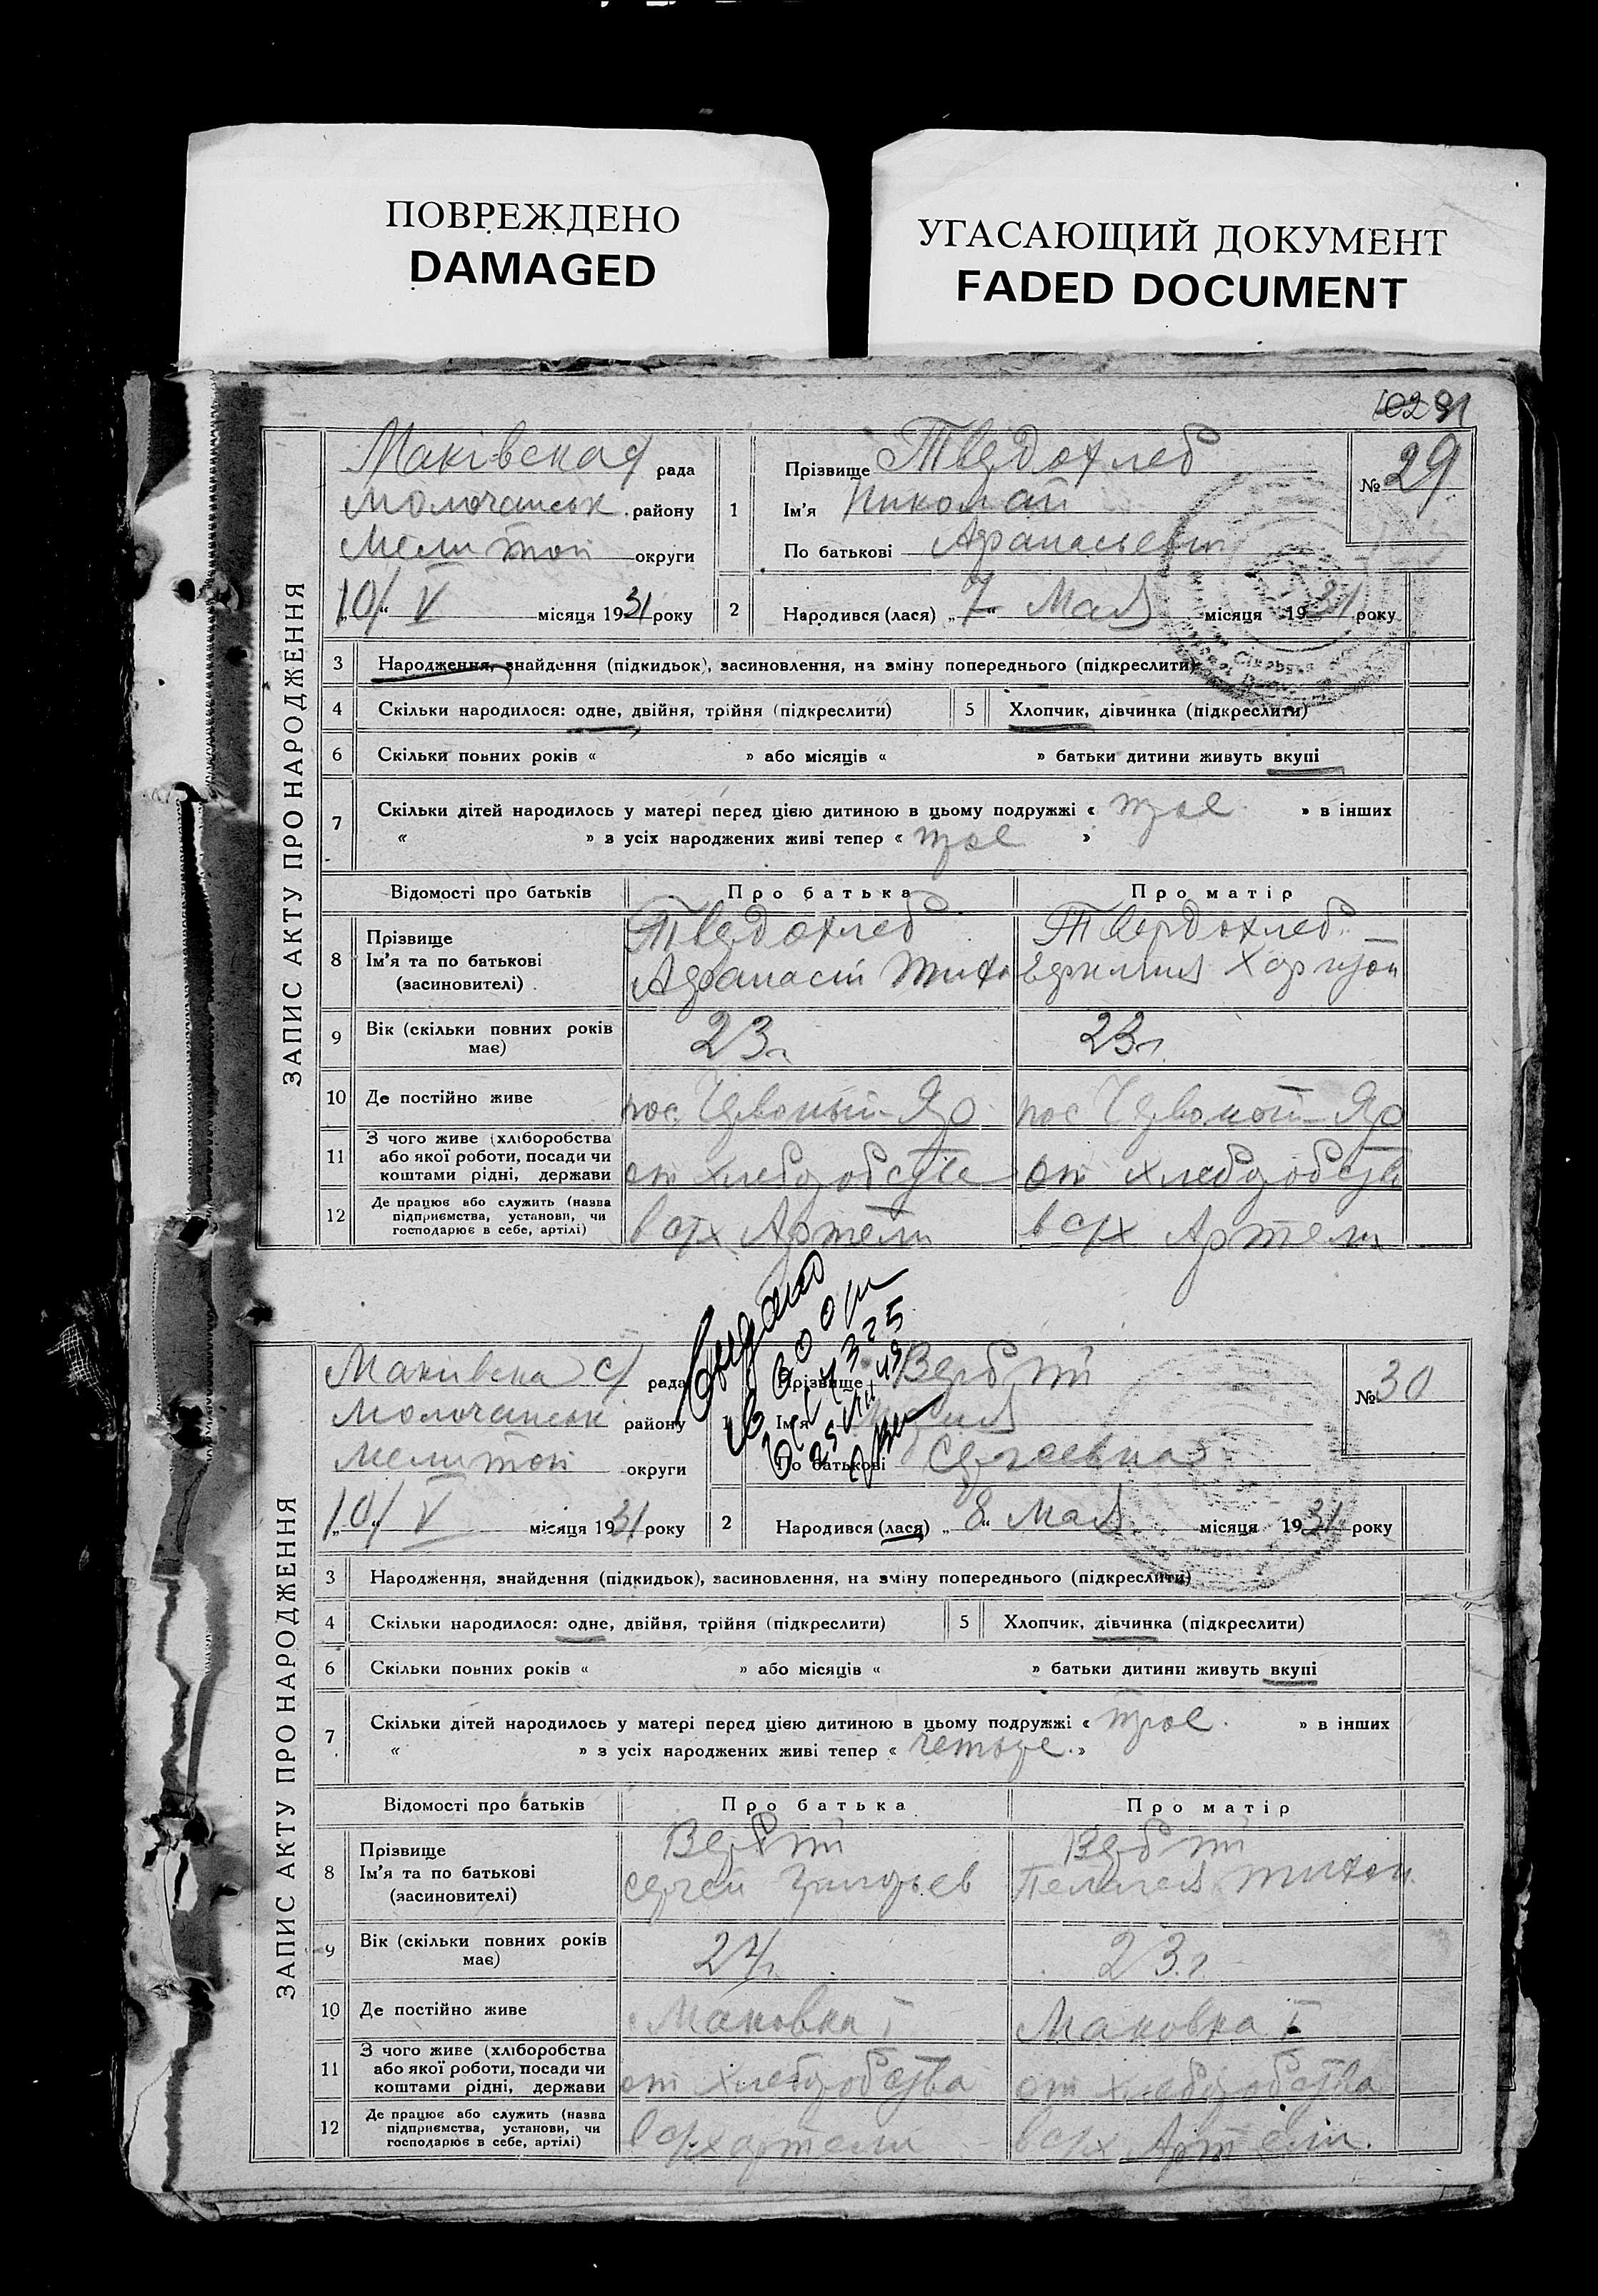 ПОВРЕЖДЕНО
DAMAGED
УГАСАЮЩИЙ ДОКУМЕНТ
FADED DOCUMENT
102 91
ЗАПИС АКТУ ПРО НАРОДЖЕННЯ
Маківская с/ рада
Молочанськ району
Мелитоп округи
„10/“ V місяця 1931 року
1 Прізвище Твердохлеб
Ім'я Николай
По батькові Афанасьевич
№ 29
2 Народився (лася) „7“ Мая місяця 1931 року
3 Народження, знайдення (підкидьок), засиновлення, на зміну попереднього (підкреслити)
4 Скільки народилося: одне, двійня, трійня (підкреслити) 5 Хлопчик, дівчинка (підкреслити)
6 Скільки повних років « » або місяців « » батьки дитини живуть вкупі
7 Скільки дітей народилось у матері перед цією дитиною в цьому подружжі « трое » в інших
« » з усіх народжених живі тепер « трое »
Відомості про батьків Про батька Про матір
8 Прізвище Твердохлеб Твердохлеб
Ім'я та по батькові Афанасій Тихо Харитон
(засновителі)
9 Вік (скільки повних років має) 23г. 23г.
10 Де постійно живе пос. Червоный Яр пос Червоный Яр
11 З чого живе (хліборобства або якої роботи, посади чи коштами рідні, держави от хлеборобства от хлеборобства
12 Де працює або служить (назва підприємства, установи, чи господарює в себе, артілі) в с/х Артели в с/х Артели
Видано
ЗАПИС АКТУ ПРО НАРОДЖЕННЯ
Маківска с/ рада
Молочанськ району
Мелитоп округи
„10/“ V місяця 1931 року
1 Прізвище
Ім'я
По батькові Сергеевна
№ 30
2 Народився (лася) „8“ Мая місяця 1931 року
3 Народження, знайдення (підкидьок), засиновлення, на зміну попереднього (підкреслити)
4 Скільки народилося: одне, двійня, трійня (підкреслити) 5 Хлопчик, дівчинка (підкреслити)
6 Скільки повних років « » або місяців « » батьки дитини живуть вкупі
7 Скільки дітей народилось у матері перед цією дитиною в цьому подружжі « трое » в інших
« » з усіх народжених живі тепер « четверо »
Відомості про батьків Про батька Про матір
8 Прізвище
Ім'я та по батькові Сергей Григорьев Пелагея Тихон
(засиновителі)
9 Вік (скільки повних років має) 24г. 23.г.
10 Де постійно живе Маковка I Маковка I
11 З чого живе (хліборобства або якої роботи, посади чи коштами рідні, держави от хлеборобства от хлеборобства
12 Де працює або служить (назва підприємства, установи, чи господарює в себе, артілі) в с/х артели в с/х Артели.